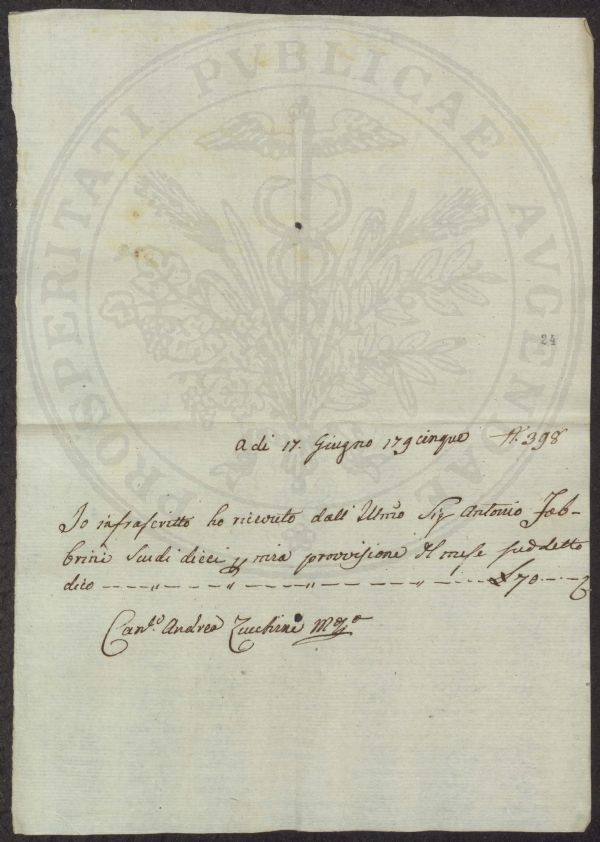 PROSPERITATI PVBLICAE AVGENDAE
a di 17. Giugno 179cinque N.398
Io infrascritto ho ricevuto dall Illmo Sig Antonio Fab-
brini scudi dieci mia provvisione del mese suddetto
dico £ 70
Can.co Andrea Zucchini